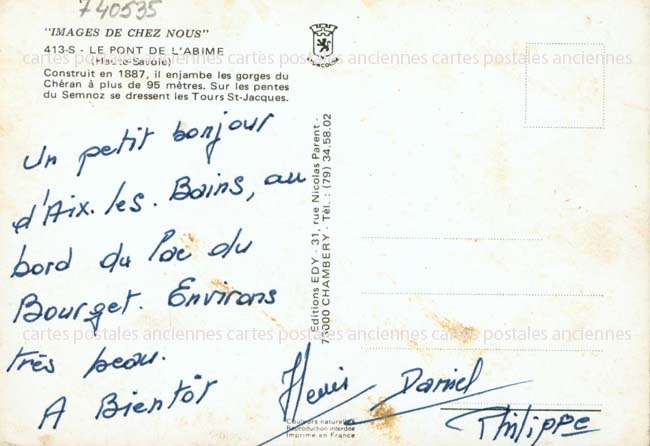 740535
"IMAGES DE CHEZ NOUS"
413-S - LE PONT DE L'ABIME
(Haute-Savoie)
Construit en 1887, il enjambe les gorges du
Chéran à plus de 95 mètres. Sur les pentes
du Semnoz se dressent les Tours St-Jacques.
cartes postales anciennes cartes postales anciennes cartes postales anciennes
Un petit bonjour
d'Aix. les. Bains, au
bord du Lac du
Bourget. Environs
très beau.
A Bientôt
Daniel
Philippe
Editions EDY - 31, rue Nicolas Parent -
73000 CHAMBERY - Tél. : (79) 34.58.02
cartes postales anciennes cartes postales anciennes cartes postales anciennes
Couleurs naturelles
Reproduction interdite
Imprimé en France